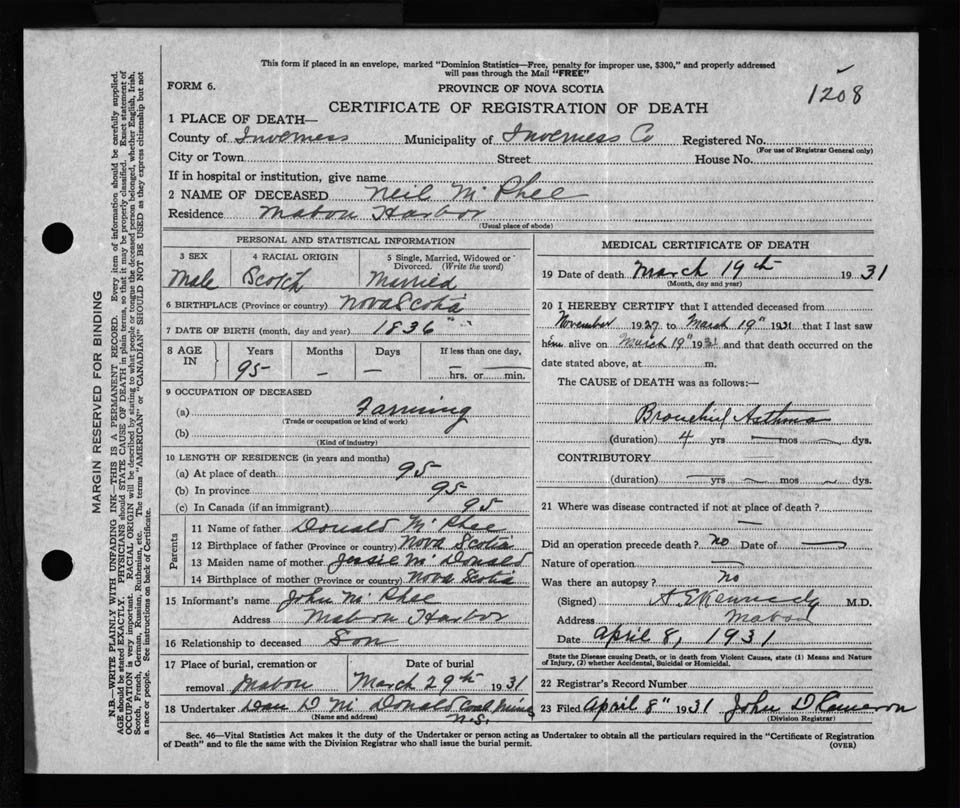 This form if placed in an envelope, marked "Dominion Statistics—Free, penalty for improper use, $300," and properly addressed
will pass through the Mail "FREE"
1208
FORM 6.
PROVINCE OF NOVA SCOTIA
CERTIFICATE OF REGISTRATION OF DEATH
1 PLACE OF DEATH—
County of Inverness Municipality of Inverness Co Registered No.
(For use of Registrar General only)
City or Town Street House No.
If in hospital or institution, give name
2 NAME OF DECEASED Neil McPhee
Residence Mabou Harbor
(Usual place of abode)
PERSONAL AND STATISTICAL INFORMATION
3 SEX 4 RACIAL ORIGIN 5 Single, Married, Widowed or
Divorced. (Write the word)
Male Scotch Married
6 BIRTHPLACE (Province or country) Nova Scotia
7 DATE OF BIRTH (month, day and year) 1836 " "
8 AGE IN Years Months Days If less than one day,
95 — — hrs. or min.
9 OCCUPATION OF DECEASED
(a) Farming
(Trade or occupation or kind of work)
(b)
(Kind of industry)
10 LENGTH OF RESIDENCE (in years and months)
(a) At place of death 95
(b) In province 95
(c) In Canada (if an immigrant) 95
Parents
11 Name of father Donald McPhee
12 Birthplace of father (Province or country) Nova Scotia
13 Maiden name of mother Jessie McDonald
14 Birthplace of mother (Province or country) Nova Scotia
15 Informant's name John McPhee
Address Mabou Harbor
16 Relationship to deceased Son
17 Place of burial, cremation or Date of burial
removal Mabou March 29th 1931
18 Undertaker Dan D McDonald Coal Mines
(Name and address) N.S.
MEDICAL CERTIFICATE OF DEATH
19 Date of death March 19th 1931
(Month, day and year)
20 I HEREBY CERTIFY that I attended deceased from
November 1927 to March 19" 1931 that I last saw
him alive on March 19" 1931 and that death occurred on the
date stated above, at m.
The CAUSE OF DEATH was as follows:—
Bronchial Asthma
(duration) 4 yrs — mos — dys.
CONTRIBUTORY
(duration) — yrs — mos — dys.
21 Where was disease contracted if not at place of death?
—
Did an operation precede death? no Date of —
Nature of operation —
Was there an autopsy? no
(Signed) A S Kennedy M.D.
Address Mabou
Date April 8, 1931
State the Disease causing Death, or in death from Violent Causes, state (1) Means and Nature
of Injury, (2) whether Accidental, Suicidal or Homicidal.
22 Registrar's Record Number
23 Filed April 8" 1931 John D Cameron
(Division Registrar)
Sec. 46—Vital Statistics Act makes it the duty of the Undertaker or person acting as Undertaker to obtain all the particulars required in the "Certificate of Registration
of Death" and to file the same with the Division Registrar who shall issue the burial permit.
(OVER)
MARGIN RESERVED FOR BINDING
N.B.—WRITE PLAINLY WITH UNFADING INK—THIS IS A PERMANENT RECORD. Every item of information should be carefully supplied.
AGE should be stated EXACTLY. PHYSICIANS should STATE CAUSE OF DEATH in plain terms, so that it may be properly classified. Exact statement of
OCCUPATION is very important. RACIAL ORIGIN will be described by stating to what people or tongue the deceased person belonged, whether English, Irish,
Scotch, French, German, Russian, Ruthenian, etc. The terms "AMERICAN" or "CANADIAN" SHOULD NOT BE USED as they express citizenship but not
a race or people. See instructions on back of Certificate.